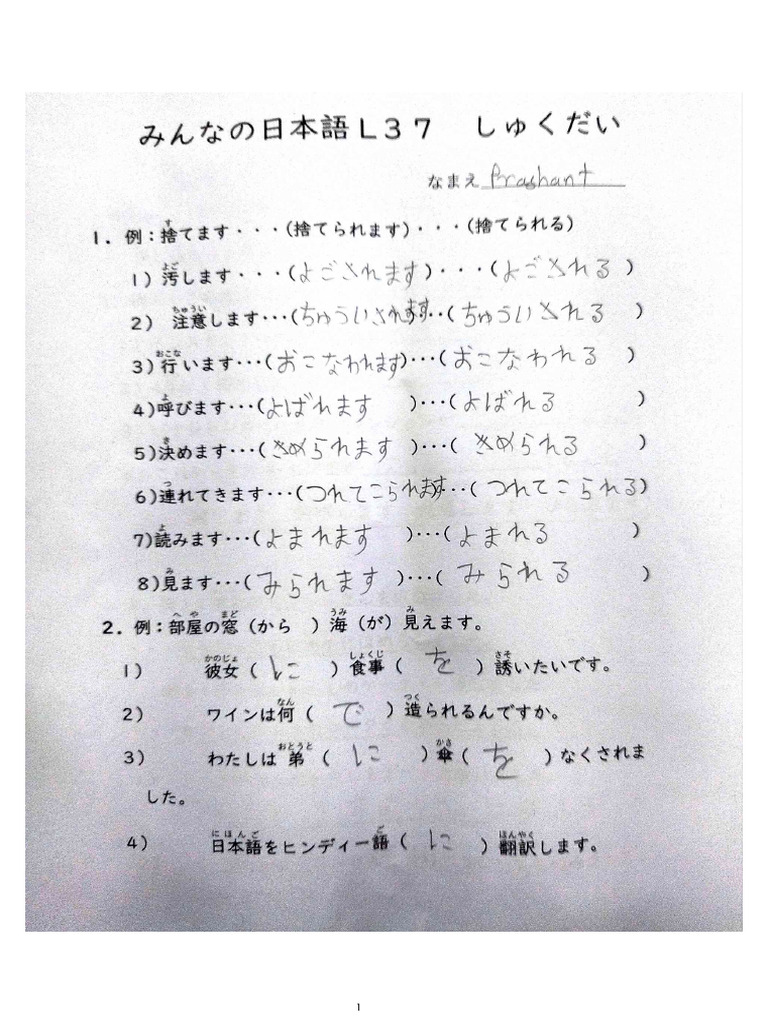 みんなの日本語L37 しゅくだい
なまえ Prashant
1. 例：捨てます・・・（捨てられます）・・・（捨てられる）
1）汚します・・・（よごされます）・・・（よごされる）
2） 注意します・・・（ちゅういされます・・（ちゅういされる）
3)行います・・・（おこなわれます）・・・（おこなわれる）
4)呼びます・・・（よばれます）・・・（よばれる）
5)決めます・・・（きめられます）・・・（きめられる）
6)連れてきます・・・（つれてこられます・・（つれてこられる）
7)読みます・・・（よまれます）・・・（よまれる）
8)見ます・・・（みられます）・・・（みられる）
2. 例：部屋の窓（から ）海（が）見えます。
1） 彼女（に）食事（を）誘いたいです。
2） ワインは何（で）造られるんですか。
3） わたしは弟（に）傘（を）なくされま
した。
4） 日本語をヒンディー語（に）翻訳します。
1